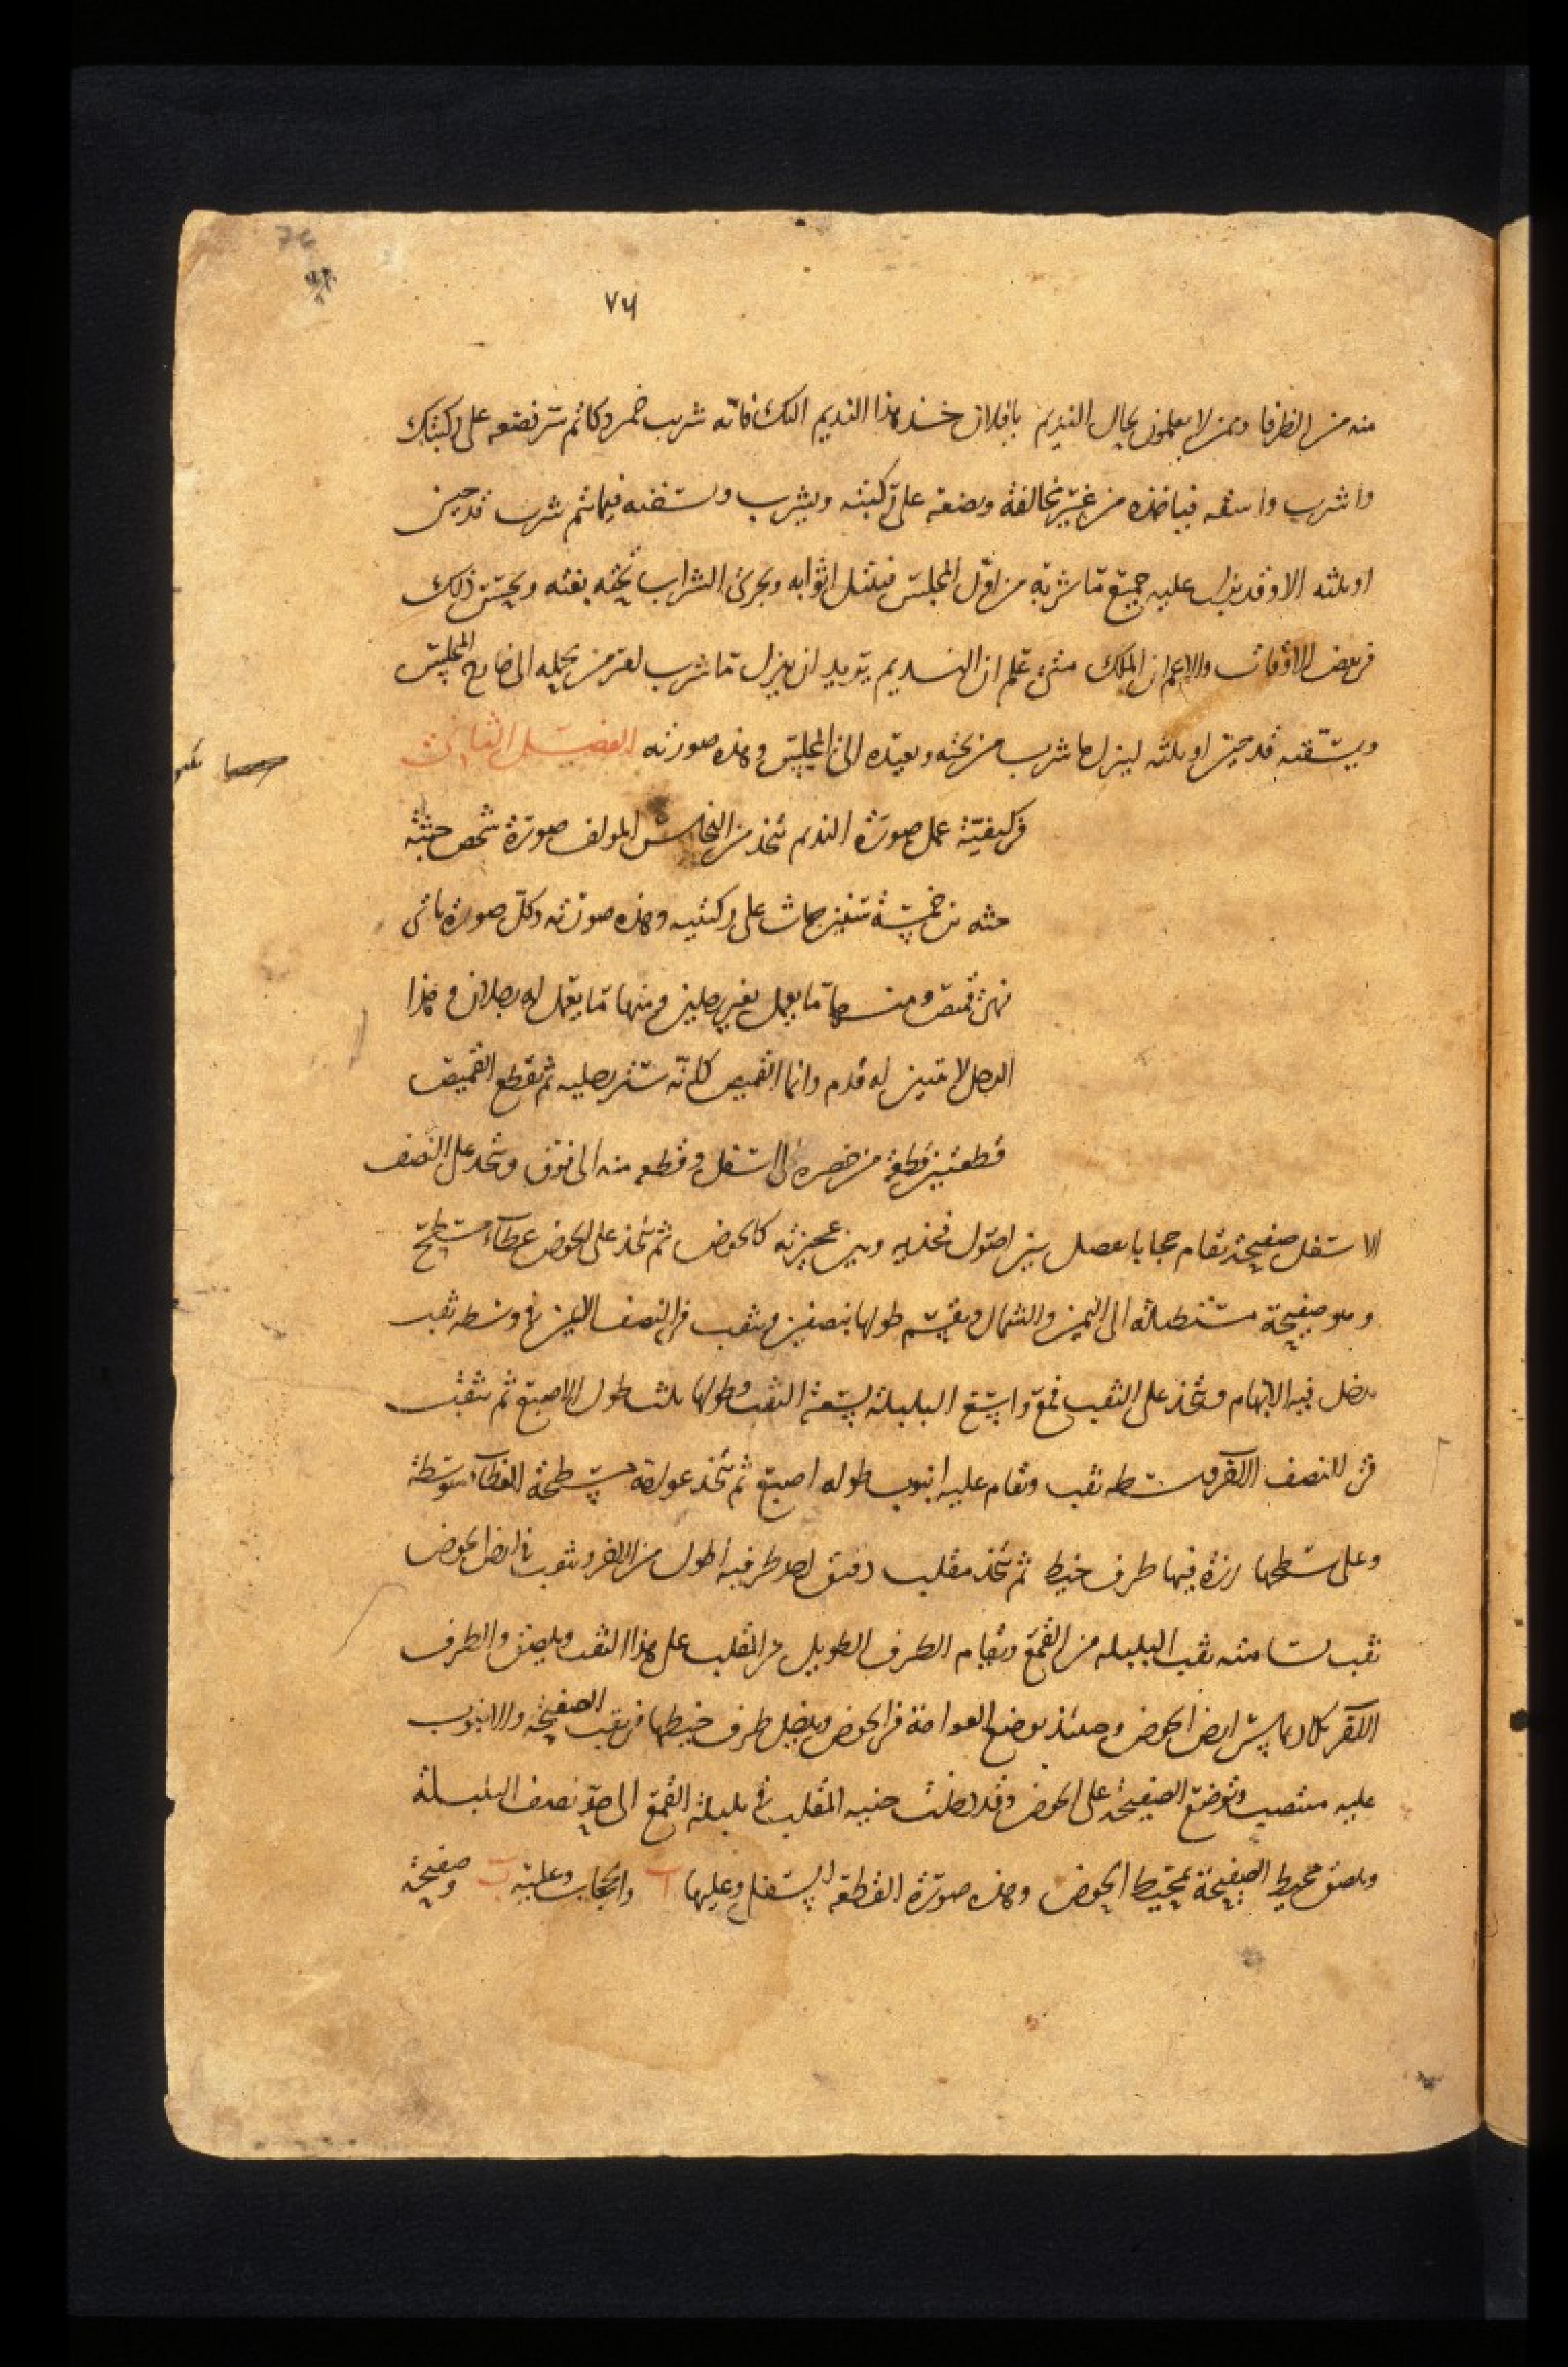 ٧٤
منه من الظرفا وممن لا يعلمون بحال النديم يا فلان خذ هذا النديم اليك فانه شرب خمر وكاثم تضعه على ركبتك
واشرب واسقه فياخذه من غير مخالفة ويضعه على ركبته ويشرب ويسقيه فيما ثم شرب قدحين
او ثلثه الا وقد بزل عليه جميع ما شربه من اول المجلس فيبتل اثوابه ويجرى الشراب تحته بغته ويحسن ذلك
فى بعض الاوقات والاعم ان الملك متى علم ان النديم يريد ان يبزل ما شرب امر من يحمله الى خارج المجلس
ويسقيه قدحين او ثلثه ليبزل ما شرب من تحته ويعيده الى المجلس وهذه صورته الفصل الثانى
فى كيفية عمل صورة النديم يتخذ من النحاس المولف صورة شخص جثته
جثه بن خمسة سنين جاث على ركبتيه وهذه صورته وكل صورة ياتى
فهى قميص ومنها ما يعمل بغير رجلين ومنها ما يعمل له رجلان وهذا
الرجل لا تبين له قدم وانما القميص كانه ستر رجليه ثم يقطع القميص
قطعتين قطعة من خصره الى اسفل وقطعه منه الى فوق ويتخذ على النصف
الاسفل صفيحة تقام حجابا يفصل بين اصول فخذيه وبين عجيزته كالحوض ثم يتخذ على الحوض غطاء مسطح
وهو صفيحة مستطيلة الى اليمين والشمال ويقسم طولها بنصفين ويثقب فى النصف الايمن فى وسطه ثقب
يدخل فيه الابهام ويتخذ على الثقب قمع واسع البلبلة بسعة الثقب وطولها ثلث طول الاصبع ثم يثقب
فى النصف الاخر وسطه ثقب ويقام عليه انبوب طوله اصبع ثم يتخذ عوامة مسطحة الغطاء متوسطة
وعلى سطحها رزة فيها طرف خيط ثم يتخذ مقلب دقيق احد طرفيه اطول من الاخر ويثقب فى ارض الحوض
ثقب لمسامته ثقب البلبله من القمع ويقام الطرف الطويل من المقلب على هذا الثقب ويلصق والطرف
الاخر يكاد يماس ارض الحوض وحينئذ توضع العوامة فى الحوض ويدخل طرف خيطها فى ثقب الصفيحة والانبوب
عليه منتصب وتوضع الصفيحة على الحوض وقد دخلت حنيه المقلب فى بلبلة القمع الى حد نصف البلبلة
ويلصق محيط الصفيحة بمحيط الحوض وهذه صورة القطعة السفل وعليها آ والحجاب وعليه ب وصفيحة